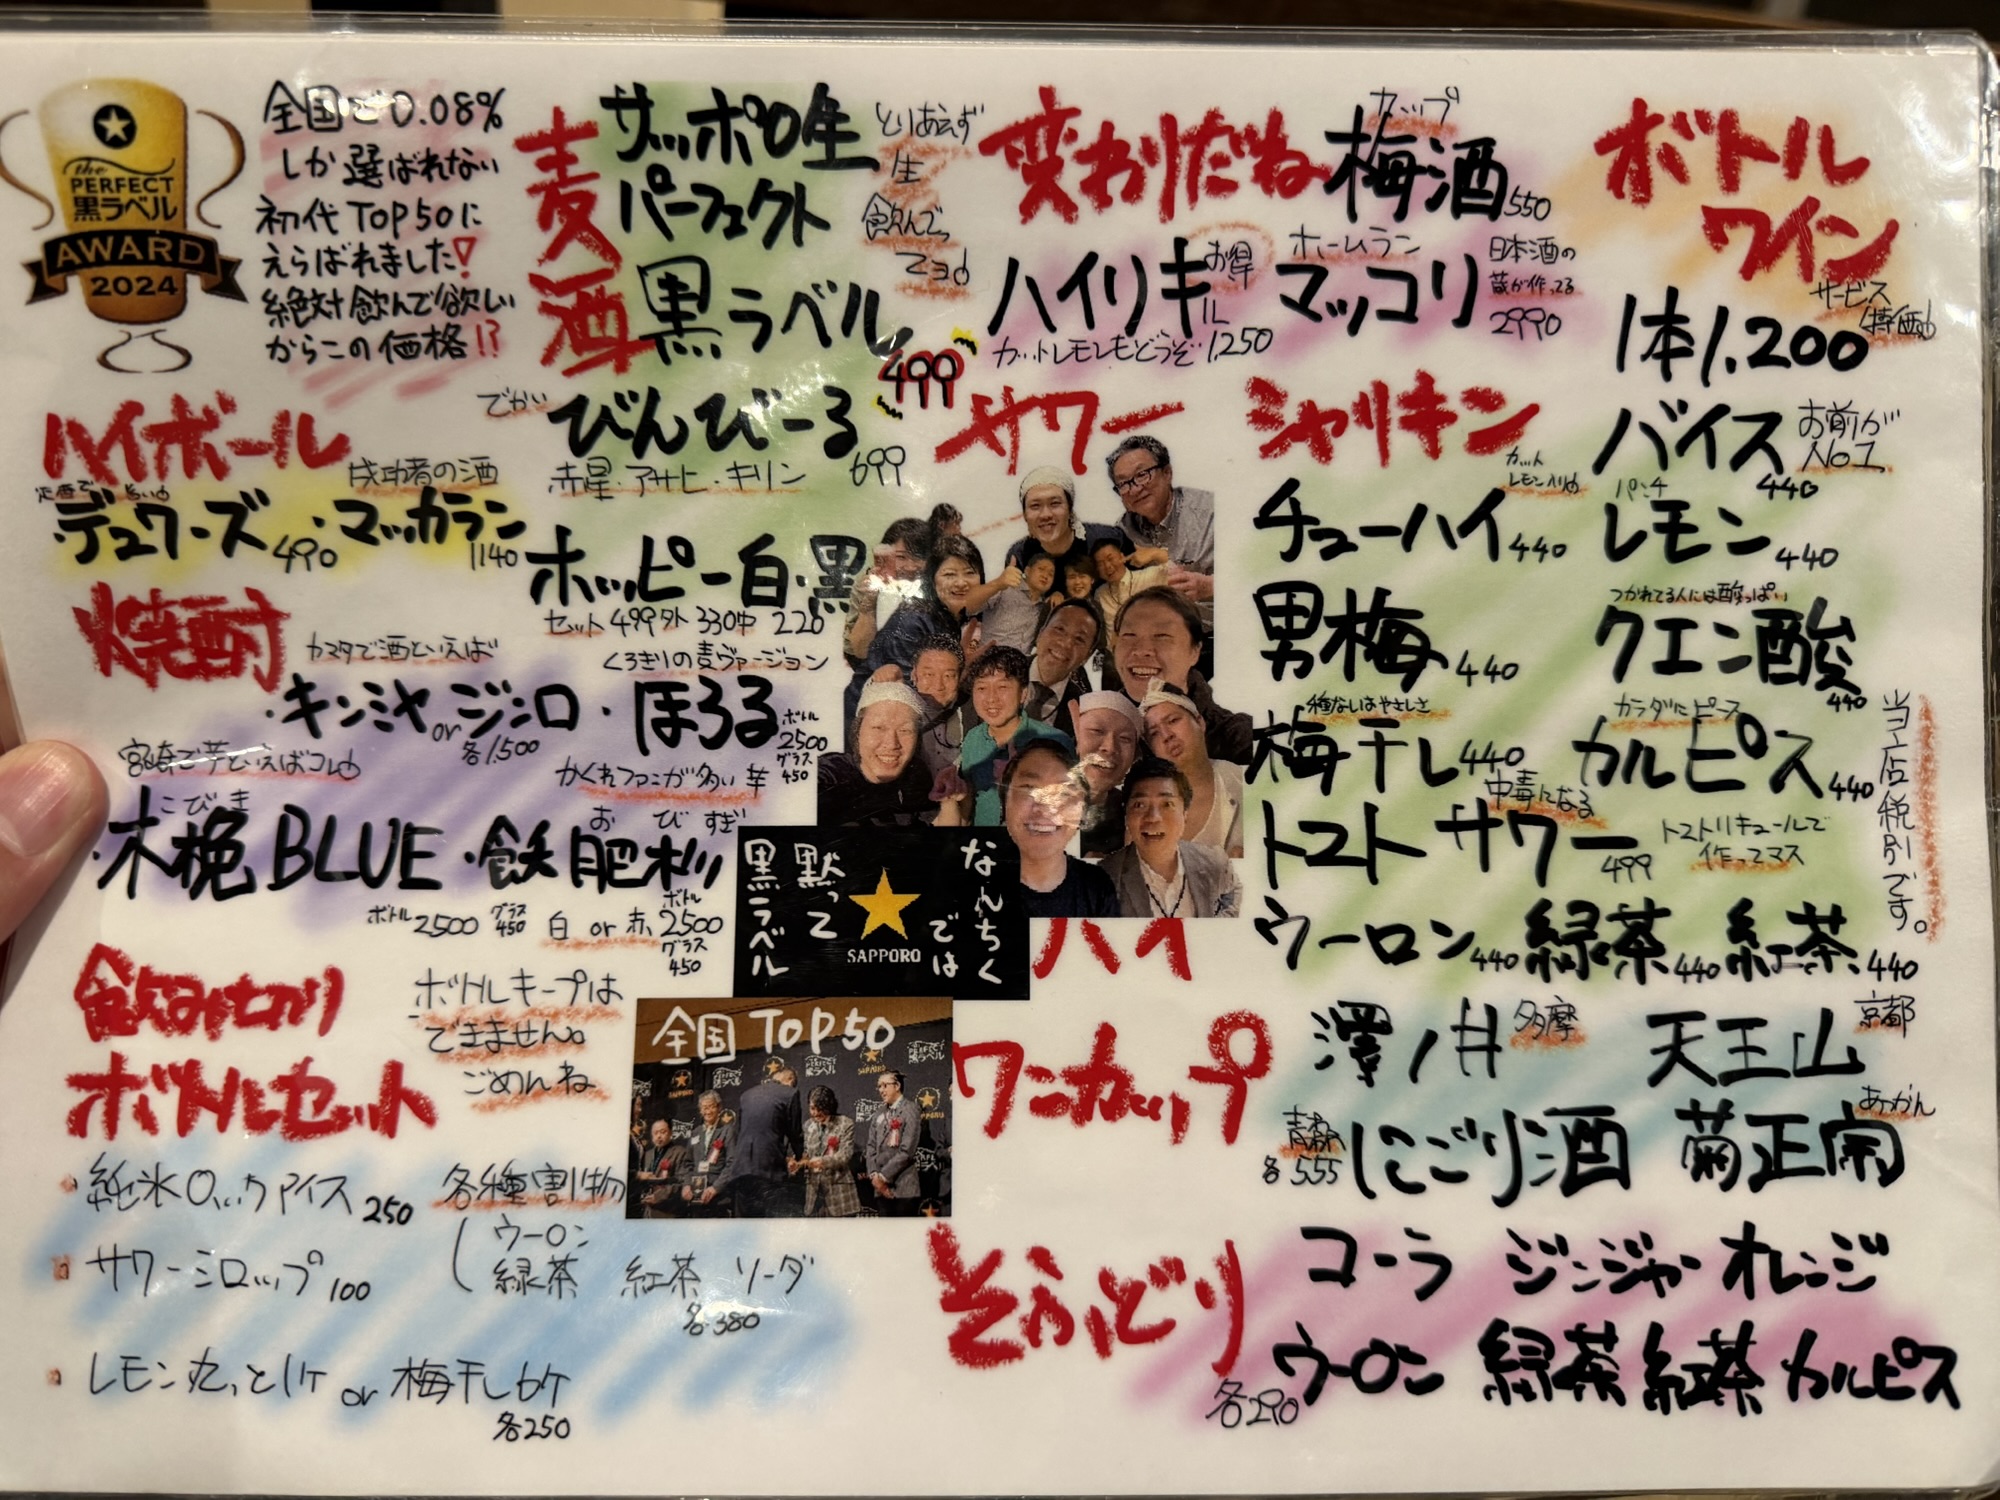 the
PERFECT
黒ラベル
AWARD
2024
全国で0.08%
しか選ばれない
初代TOP50に
えらばれました!
絶対飲んで欲しい
からこの価格!?
麦酒
サッポロ生
パーフェクト
黒ラベル
499
とりあえず
生
飲んで
でかい
びんびーる
赤星・アサヒ・キリン 699
ホッピー白・黒
セット499外330中220
変わりだね
カップ
梅酒550
ハイリキ
お得
1L
カットレモンもどうぞ 1,250
ホームラン
マッコリ
日本酒の
蔵が作ってる
2990
ボトル
ワイン
サービス
特価
1本1,200
ハイボール
成功者の酒
デュワーズ490・マッカラン
1140
焼酎
カマタで酒といえば
くろぎりの麦ヴァージョン
・キンミヤorジンロ・ほろる
各1,500
ボトル
2500
グラス
450
宮崎で芋といえばコレ
かくれファンが多い芋
こびき
・木挽BLUE
おびすぎ
・飫肥杉
ボトル2500 グラス450
白or赤
ボトル
2500
グラス
450
飲みきり
ボトルセット
ボトルキープは
できません。
ごめんね
純氷ロックアイス250
サワーシロップ100
レモン丸っと1ケor梅干し6ケ
各250
各種割物
ウーロン
緑茶 紅茶 ソーダ
各380
なんちく
では
黙って
黒ラベル
SAPPORO
全国TOP50
サワー
シャリキン
バイス
440
お前が
No1
カット
レモン入り
チューハイ440
パンチ
レモン440
男梅440
つかれてる人には酸っぱい
クエン酸
440
種ないはやさしさ
梅干し440
カラダにピース
カルピス440
中毒になる
トマトサワー
499
トマトリキュールで
作ってマス
ハイ
ウーロン440 緑茶440 紅茶440
当店税別です。
ワンカップ
澤ノ井
多摩
天王山
京都
青森
各555
にごり酒
菊正宗
あかん
そふとどり
各290
コーラ ジンジャー オレンジ
ウーロン 緑茶 紅茶 カルピス